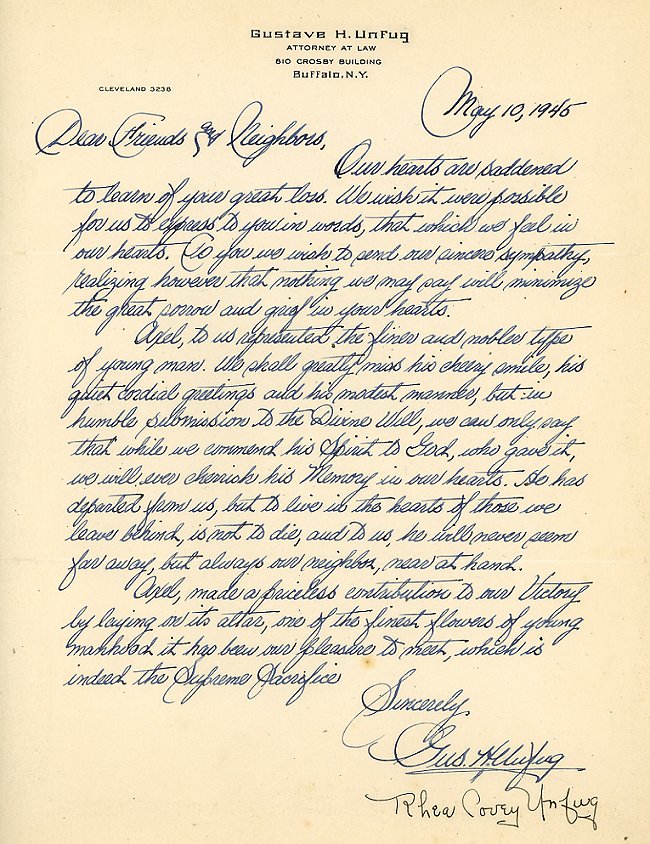 Gustave H. Unfug
ATTORNEY AT LAW
810 CROSBY BUILDING
Buffalo, N.Y.
CLEVELAND 3238
May 10, 1945
Dear Friends and Neighbors,
Our hearts are saddened
to learn of your great loss. We wish it were possible
for us to express to you in words, that which we feel in
our hearts. To you we wish to send our sincere sympathy,
realizing however that nothing we may say will minimize
the great sorrow and grief in your hearts.
Axel, to us represented the finer and nobler type
of young man. We shall greatly miss his cheery smile, his
quiet cordial greetings and his modest manner, but in
humble submission to the Divine Will, we can only say
that while we commend his Spirit to God, who gave it,
we will ever cherish his Memory in our hearts. He has
departed from us, but to live in the hearts of those we
leave behind, is not to die, and to us, he will never seem
far away, but always our neighbor, near at hand.
Axel, made a priceless contribution to our Victory
by laying on its altar, one of the finest flowers of young
manhood it has been our pleasure to meet, which is
indeed the Supreme Sacrifice
Sincerely,
Gus. H Unfug
Rhea Covey Unfug